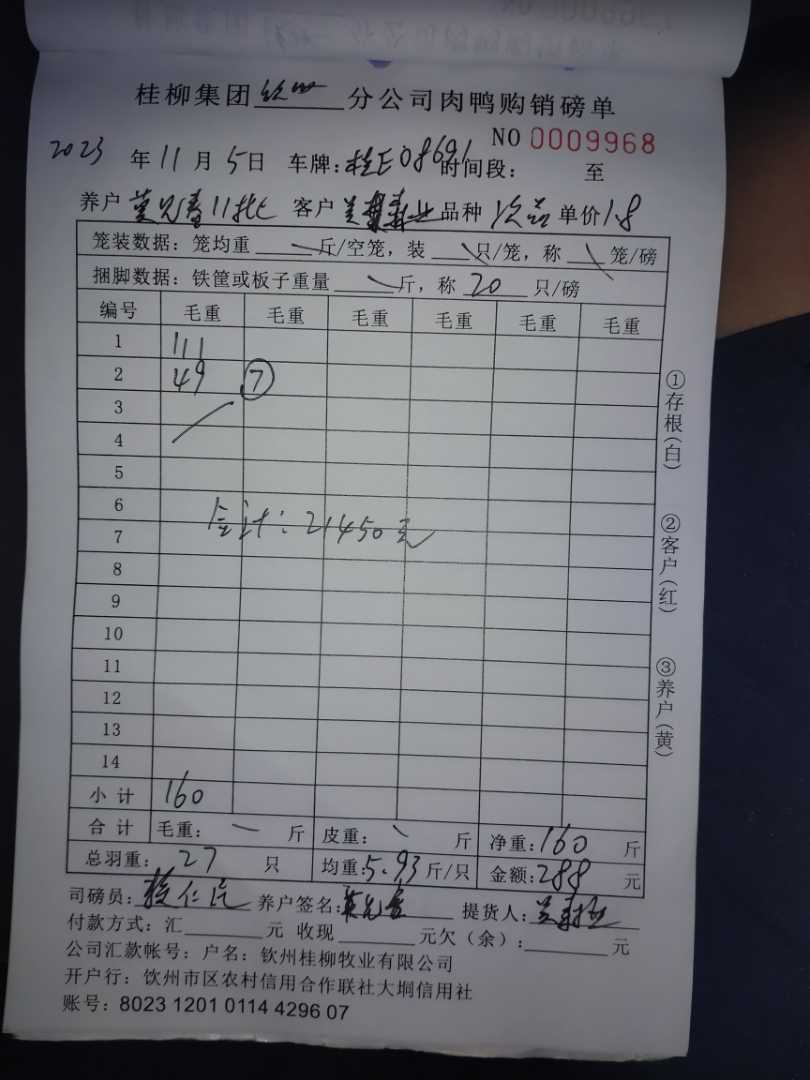 桂柳集团钦州分公司肉鸭购销磅单
NO 0009968
2023年11月5日 车牌:桂E08691时间段: 至
养户 莫兄春11批 客户 品种 次品 单价1.8
笼装数据:笼均重 斤/空笼,装 只/笼,称 笼/磅
捆脚数据:铁筐或板子重量 斤,称 20 只/磅
编号 毛重 毛重 毛重 毛重 毛重 毛重
1 111
2 49 7
3
4
5
6
合计:21450元
7
8
9
10
11
12
13
14
小计 160
合计 毛重: 斤 皮重: 斤 净重:160 斤
总羽重: 27 只 均重:5.93斤/只 金额:288 元
司磅员: 养户签名:莫兄春 提货人:
付款方式:汇 元 收现 元欠(余): 元
公司汇款帐号:户名:钦州桂柳牧业有限公司
开户行:钦州市区农村信用合作联社大垌信用社
账号:8023 1201 0114 4296 07
①存根(白)
②客户(红)
③养户(黄)